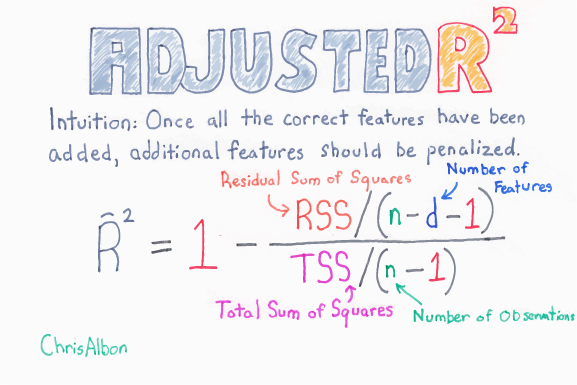 ADJUSTED R²
Intuition: Once all the correct features have been
added, additional features should be penalized.
Residual Sum of Squares
Number of
Features
R̂² = 1 - RSS/(n-d-1)
TSS/(n-1)
Total Sum of Squares
Number of Observations
ChrisAlbon